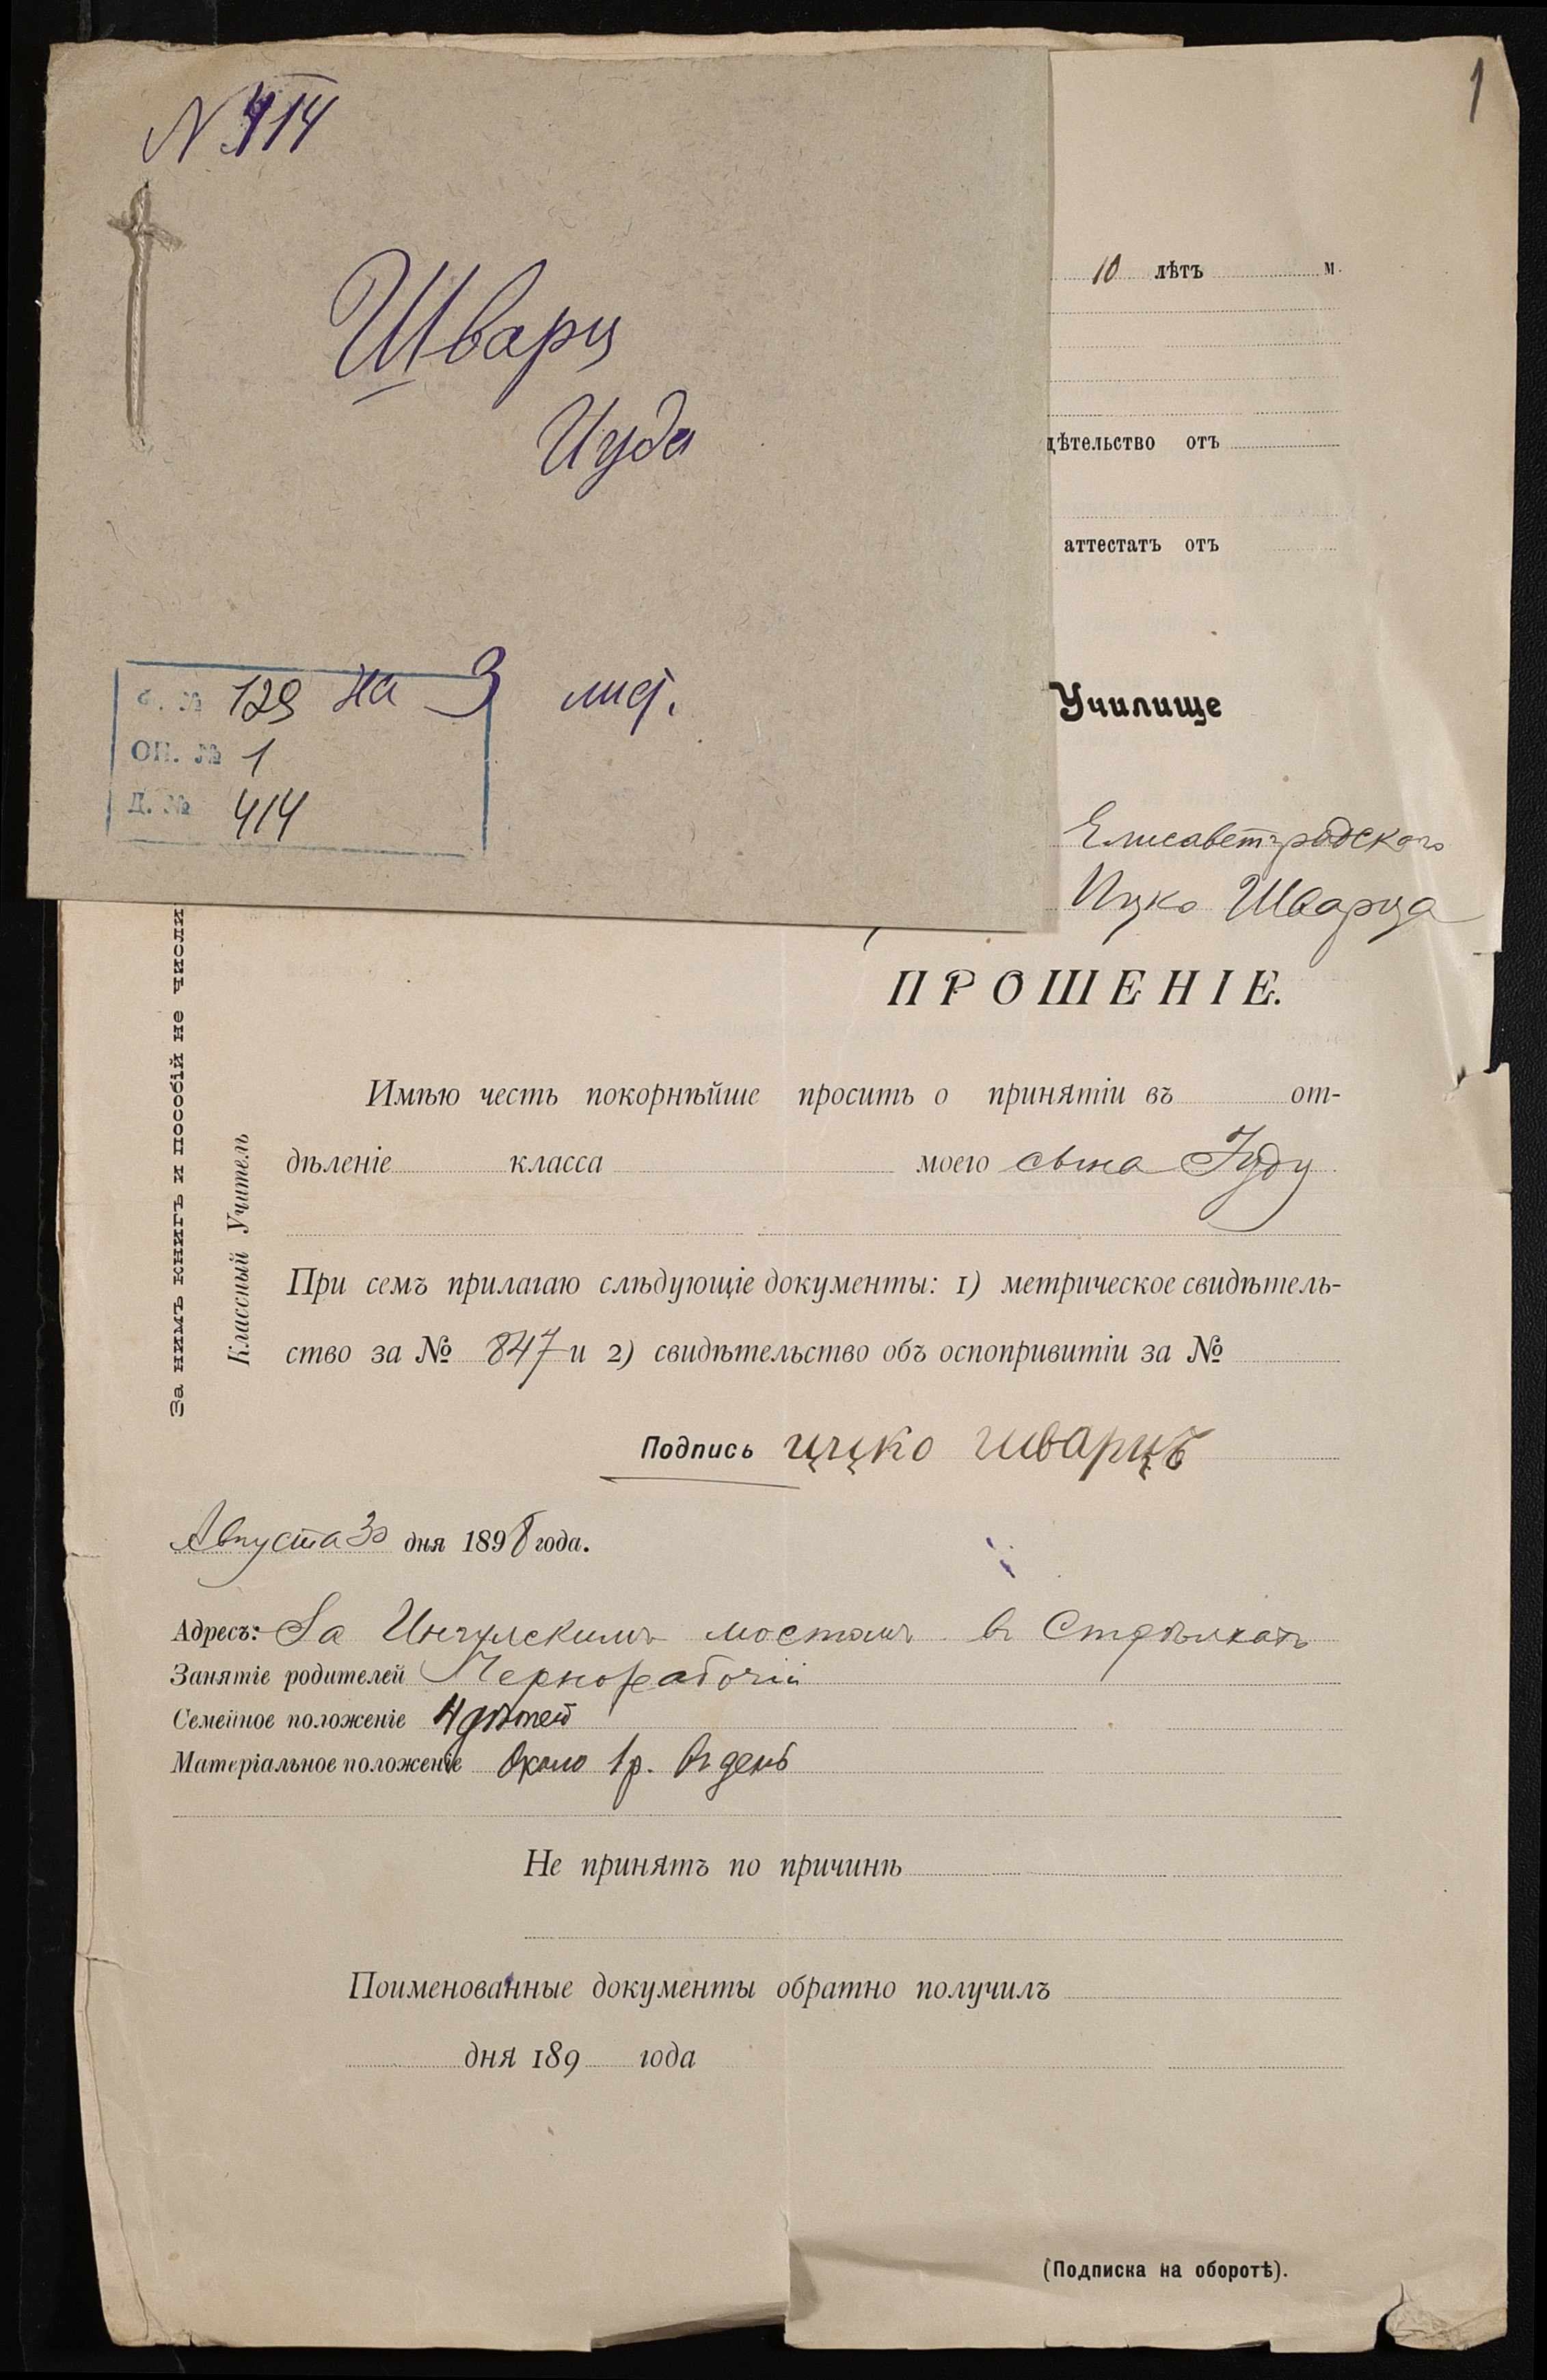 N 414
1
Шварц
Иуда
ф. № 129 на 3 лист.
ОП. № 1
Д. № 414
10 лѣтъ м.
дѣтельство отъ
аттестатъ отъ
Училище
Елисаветградскаго
Ицко Шварца
ПРОШЕНІЕ.
Имѣю честь покорнѣйше просить о принятіи въ от-
дѣленіе класса моего сына Іуду
При семъ прилагаю слѣдующіе документы: 1) метрическое свидѣтель-
ство за № 847 и 2) свидѣтельство объ оспопривитіи за №
Подпись ицко шварцъ
Августа 30 дня 1898 года.
Адресъ: За Ингулскимъ мостомъ в Стрѣлкахъ
Занятіе родителей Чернорабочій
Семейное положеніе 4 дѣтей
Матеріальное положеніе Около 1 р. въ день
Не принятъ по причинѣ
Поименованные документы обратно получилъ
дня 189 года
(Подписка на оборотѣ).
За нимъ книгъ и пособій не числи
Классный Учитель